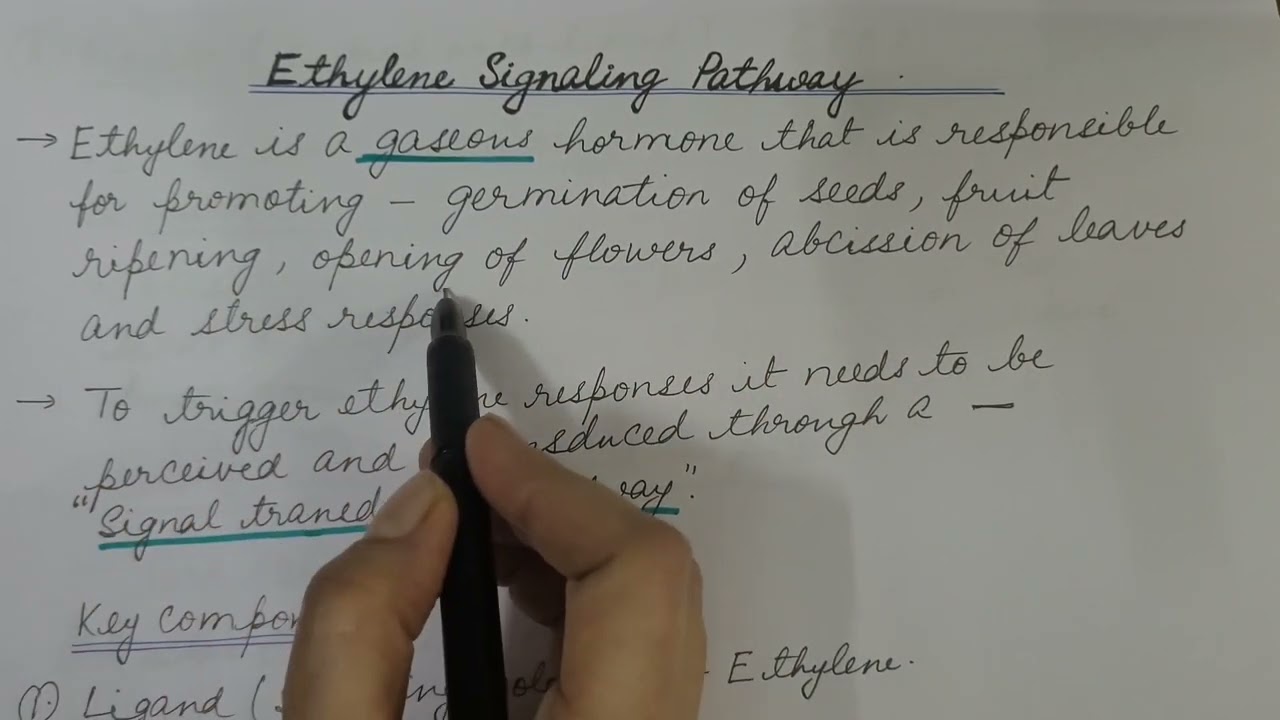 Ethylene Signaling Pathway
→ Ethylene is a gaseous hormone that is responsible
for promoting – germination of seeds, fruit
ripening, opening of flowers, abcission of leaves
and stress responses.
→ To trigger responses it needs to be
perceived and through a —
"Signal
Key
1) Ligand ( Ethylene.